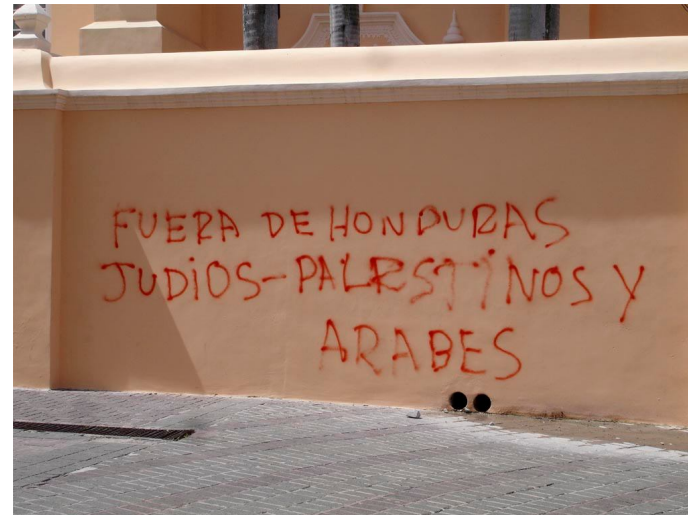 FUERA DE HONDURAS
JUDIOS-PALESTINOS Y
ARABES